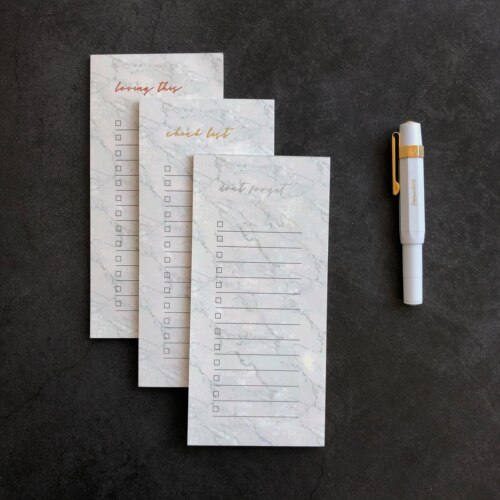 loving this
check list
dont forget